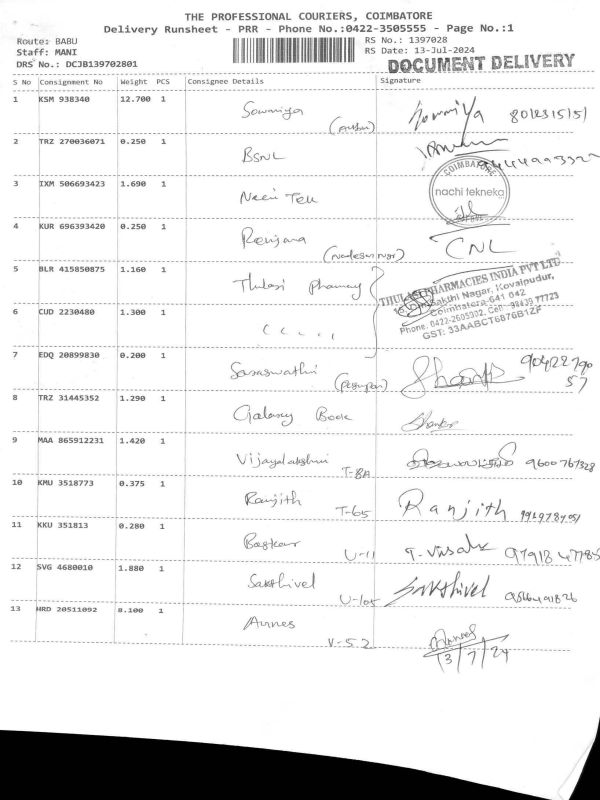 THE PROFESSIONAL COURIERS, COIMBATORE
Delivery Runsheet - PRR - Phone No.:0422-3505555 - Page No.:1
Route: BABU RS No.: 1397028
Staff: MANI RS Date: 13-Jul-2024
DRS No.: DCJB139702801 DOCUMENT DELIVERY
S No Consignment No Weight PCS Consignee Details Signature
1 KSM 938340 12.700 1 Sowmiya Sowmiya
2 TRZ 270036071 0.250 1 BSNL
COIMBATORE
3 IXM 506693423 1.690 1 nachi tekneka
4 KUR 696393420 0.250 1 Renjana CNL
5 BLR 415850875 1.160 1 Thulasi Phamacy
THULASI PHARMACIES INDIA PVT LTD
Sakthi Nagar, Kovaipudur,
Coimbatore-641 042
6 CUD 2230480 1.300 1
Phone. 0422-2605302, Cell: 98439 77723
GST: 33AABCT6876B1ZF
7 EDQ 20899830 0.200 1 Saraswathi 90422790
57
8 TRZ 31445352 1.290 1 Galaxy Book
9 MAA 865912231 1.420 1 Vijayalakshmi T-8A 9600767328
10 KMU 3518773 0.375 1 Ranjith T-65 Ranjith
11 KKU 351813 0.280 1 U-11
12 SVG 4680010 1.880 1 Sakthivel U-105 Sakthivel
13 HRD 20511092 8.100 1 V-52
13/7/24